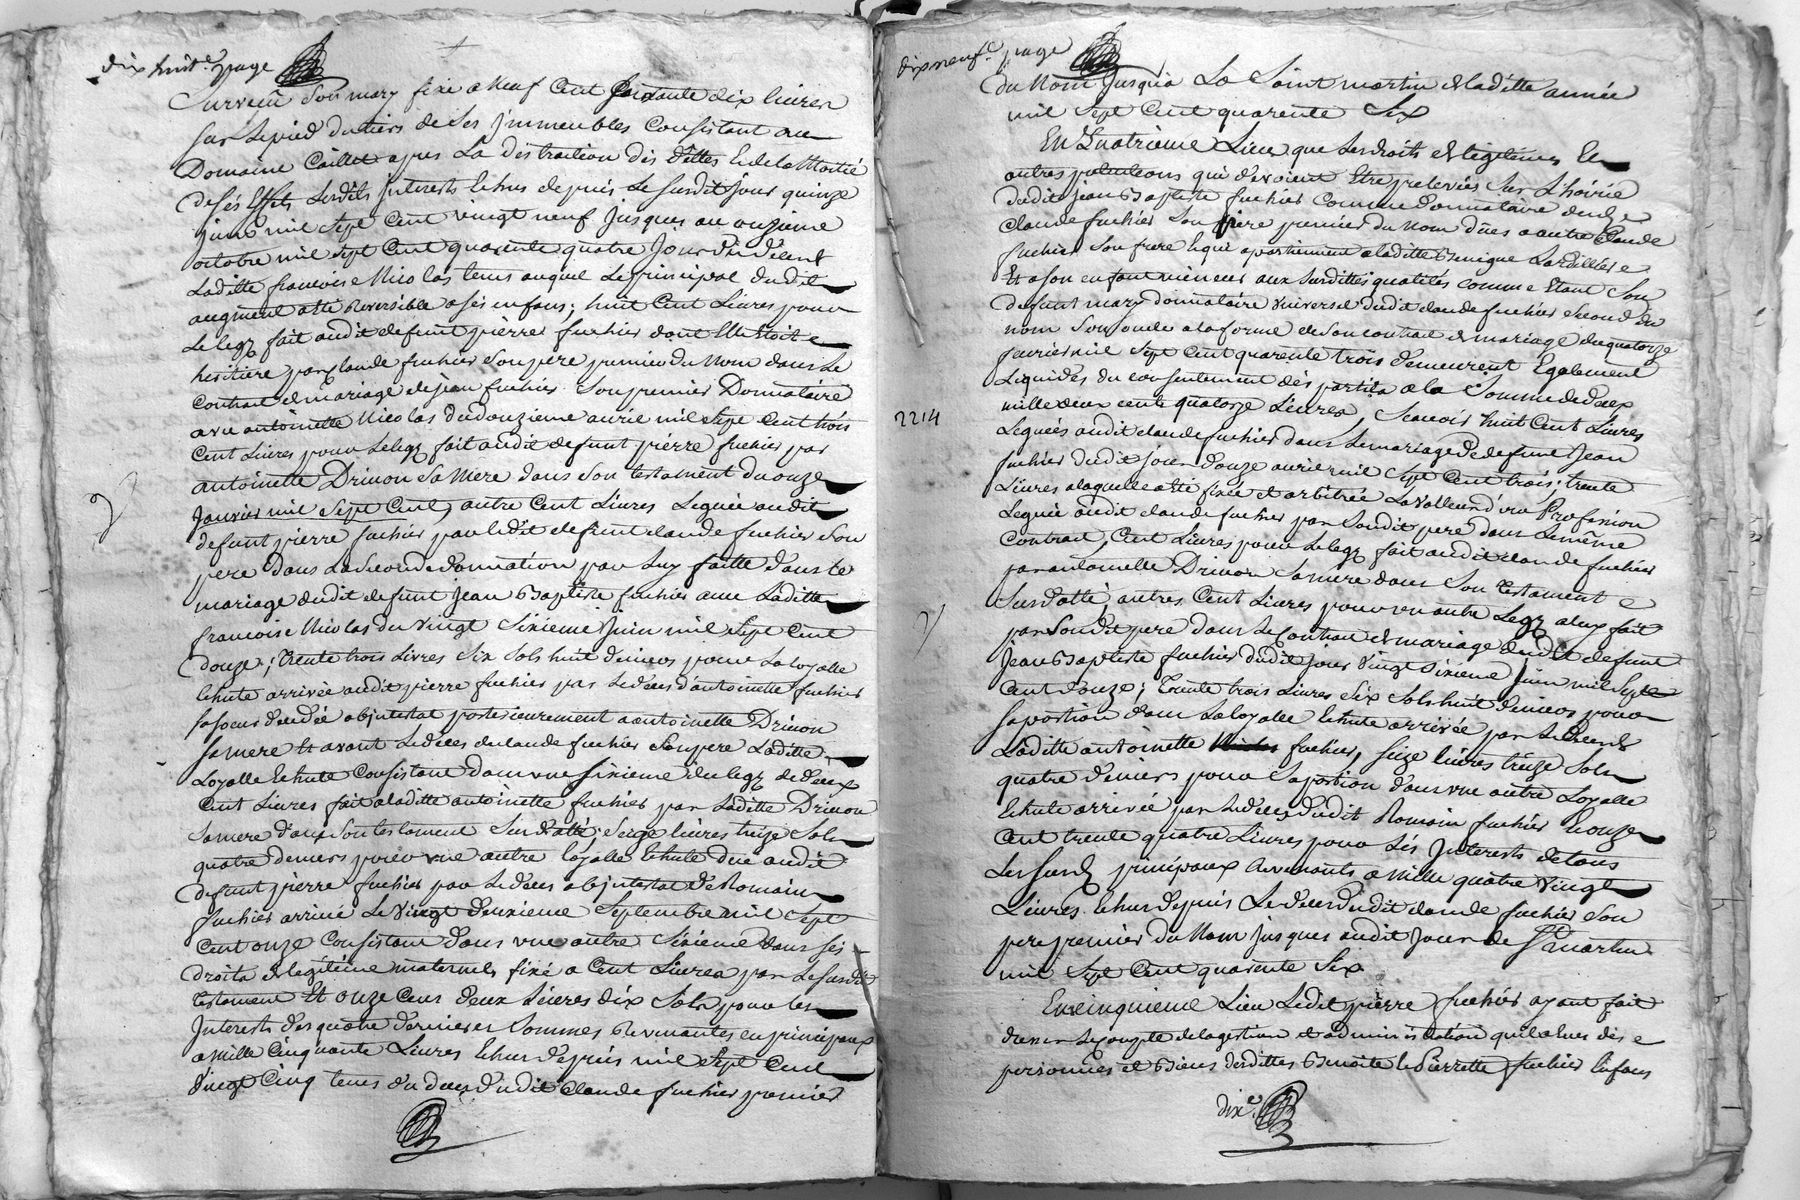 dix huite page
Survecu Son mary fixé a neuf Cent soixante dix livres
sur le pied du tiers de ses Immeubles Consistant au
Domaine Caillet apres La destraction des dettes et de la Moitié
de sés Effets Lesdits Interests Echus depuis le susdit jour quinze
juin mil sept Cent vingt neuf jusques au onzieme
octobre mil sept Cent quarente quatre Jour du déceds de
Laditte francoise Nicolas tems auquel le principal dudit
augment a été Reversible a sés enfans; huit Cent Livres pour
Le legz fait audit defunt pierre fuchier dont Elle étoit
heritiere par Claude fuchier Son pere premier du Nom dans Le
Contrat de mariage de jean fuchier Son premier Donnataire
avec antoinette Nicolas du douzieme avril mil sept Cent trois
Cent Livres pour Le legz fait audit defunt pierre fuchier par
antoinette Drinon Sa Mere dans Son testament du onze
Janvier mil Sept Cent, autre Cent Livres Leguée audit
defunt pierre fuchier par ledit defunt claude fuchier Son
pere dans La Seconde donnation par Luy faitte dans le
mariage dudit defunt Jean Baptiste fuchier avec Laditte
francoise Nicolas du vingt Sixieme Juin mil Sept Cent
douze; trente trois Livres Six Sols huit deniers pour La loyalle
Echute arrivée audit pierre fuchier par le déces d'antoinette fuchier
sa soeur décedée abintestat posterieurement a antoinette Drinon
sa mere Et avant Le déces de claude fuchier Son pere Laditte
Loyalle Echute Consistant dans une Sixieme du legz de deux
Cent Livres fait a laditte antoinette fuchier par Laditte Drinon
Sa mere dans Son testament Susdatté; Seize livres treize Sols
quatre deniers pour une autre loyalle Echute due audit
defunt pierre fuchier par le déces abintestat de Romain
fuchier arrivé Le vingt deuxieme Septembre mil Sept
Cent onze Consistant dans une autre Sixieme dans ses
droits de legitime maternels fixé a Cent Livres par Le susdit
testament Et onze Cent deux Livres dix Sols pour les
Interests des quatre dernieres Sommes Revenantes en principaux
a mille Cinquante Livres Echus depuis mil Sept Cent
Vingt Cinq tems du deces dudit Claude fuchier premier
dix neufe page
du Nom Jusqu'a La Saint martin de laditte année
mil Sept Cent quarente Six
En Quatrieme Lieu que les droits de legitimes Et
autres pretentions qui devoient Etre prelevées Sur L'hoirie
dudit jean Baptiste fuchier Comme donnataire dudit
Claude fuchier Son pere premier du Nom dûes a autre Claude
fuchier Son frere Et qui apartiennent a laditte Benigne Lardilliere
Et a son enfant mineur aux Susdittes qualités comme Etant Son
defunt mary donnataire universel dudit claude fuchier Second du
nom Son oncle a la forme de Son contrat de mariage du quatorze
fevrier mil Sept Cent quarente trois demeurent Egalement
Liquidés du consentement dés parties a la Somme de deux
mille deux cents quatorze Livres, Scavoir huit Cent Livres
2214
Leguées audit claude fuchier dans Le mariage de defunt Jean
fuchier dudit jour douze avril mil Sept Cent trois; trente
Livres a laquelle a été fixée et arbitrée La Valleur d'une Profession
Leguée audit claude fuchier par Sondit pere dans Le même
Contrat, Cent Livres pour Le legz fait audit claude fuchier
par antoinette Drinon Sa mere dans Son testament
Susdatté; autres Cent Livres pour un autre Legz a luy fait
par Sondit pere dans Le Contrat de mariage dudit defunt
Jean Baptiste fuchier dudit jour vingt Sixieme Juin mil Sept
Cent douze; trente trois Livres Six Sols huit deniers pour
Sa portion dans La loyalle Echute arrivée par Le déceds de
Laditte antoinette fuchier, Seize livres treize Sols
quatre deniers pour Sa portion dans une autre Loyalle
Echute arrivée par le deces dudit Romain fuchier Et onze
Cent trente quatre Livres pour Lés Interests de tous
Les susdts principaux Revenants a mille quatre vingt
Livres Echus depuis Le deces dudit claude fuchier Son
pere premier du Nom jusques audit Jour de St martin
mil Sept Cent quarente Six
En cinquieme Lieu Ledit pierre fuchier ayant fait
dresser Le compte de la gestion et administration qu'il a Eue dés
personnes et Biens desdittes Benoite Et Pierrette fuchier Enfans
dixe